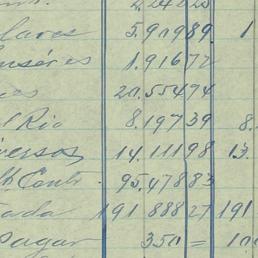 2.248 28
lares 5.909 89. 1
nséres 1.916 72
os 20.554 74
l Rio 8.197 39 8.
iversos 14.111 98 13.
Contr. 95.478 83
tada 191 888 27 191
Pagar 350 = 10